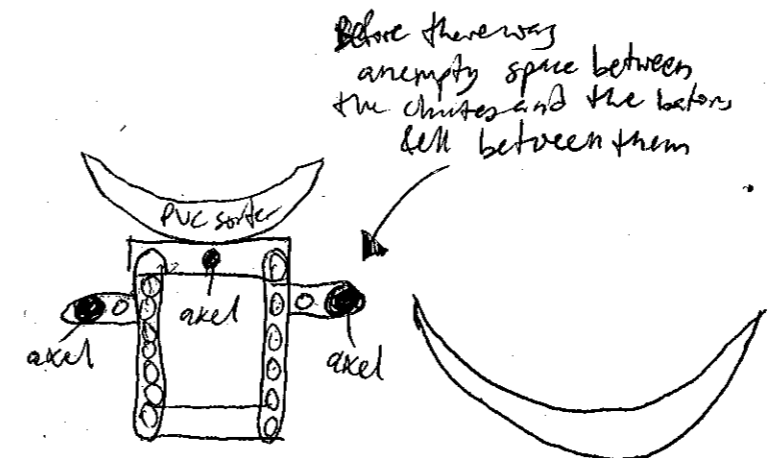 Before there was
an empty space between
the chutes and the batons
fell between them
PVC sorter
axel
axel
axel